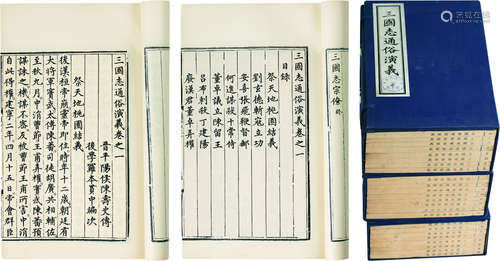 三國志通俗演義卷之一
晉平陽侯陳壽史傳
後學羅本貫中編次
祭天地桃園結義
後漢桓帝崩靈帝即位時年十二歲朝廷有
大將軍竇武太傅陳蕃司徒胡廣共相輔佐
至秋九月中涓曹節王甫弄權竇武陳蕃預
謀誅之機謀不密反被曹節王甫所害中涓
自此得權建寧二年四月十五日帝會群臣
三國志宗僚終
三國志通俗演義卷之一
目錄
祭天地桃園結義
劉玄德斬寇立功
安喜張飛鞭督郵
何進謀殺十常侍
董卓議立陳留王
呂布刺殺丁建陽
廢漢君董卓弄權
三國志通俗演義